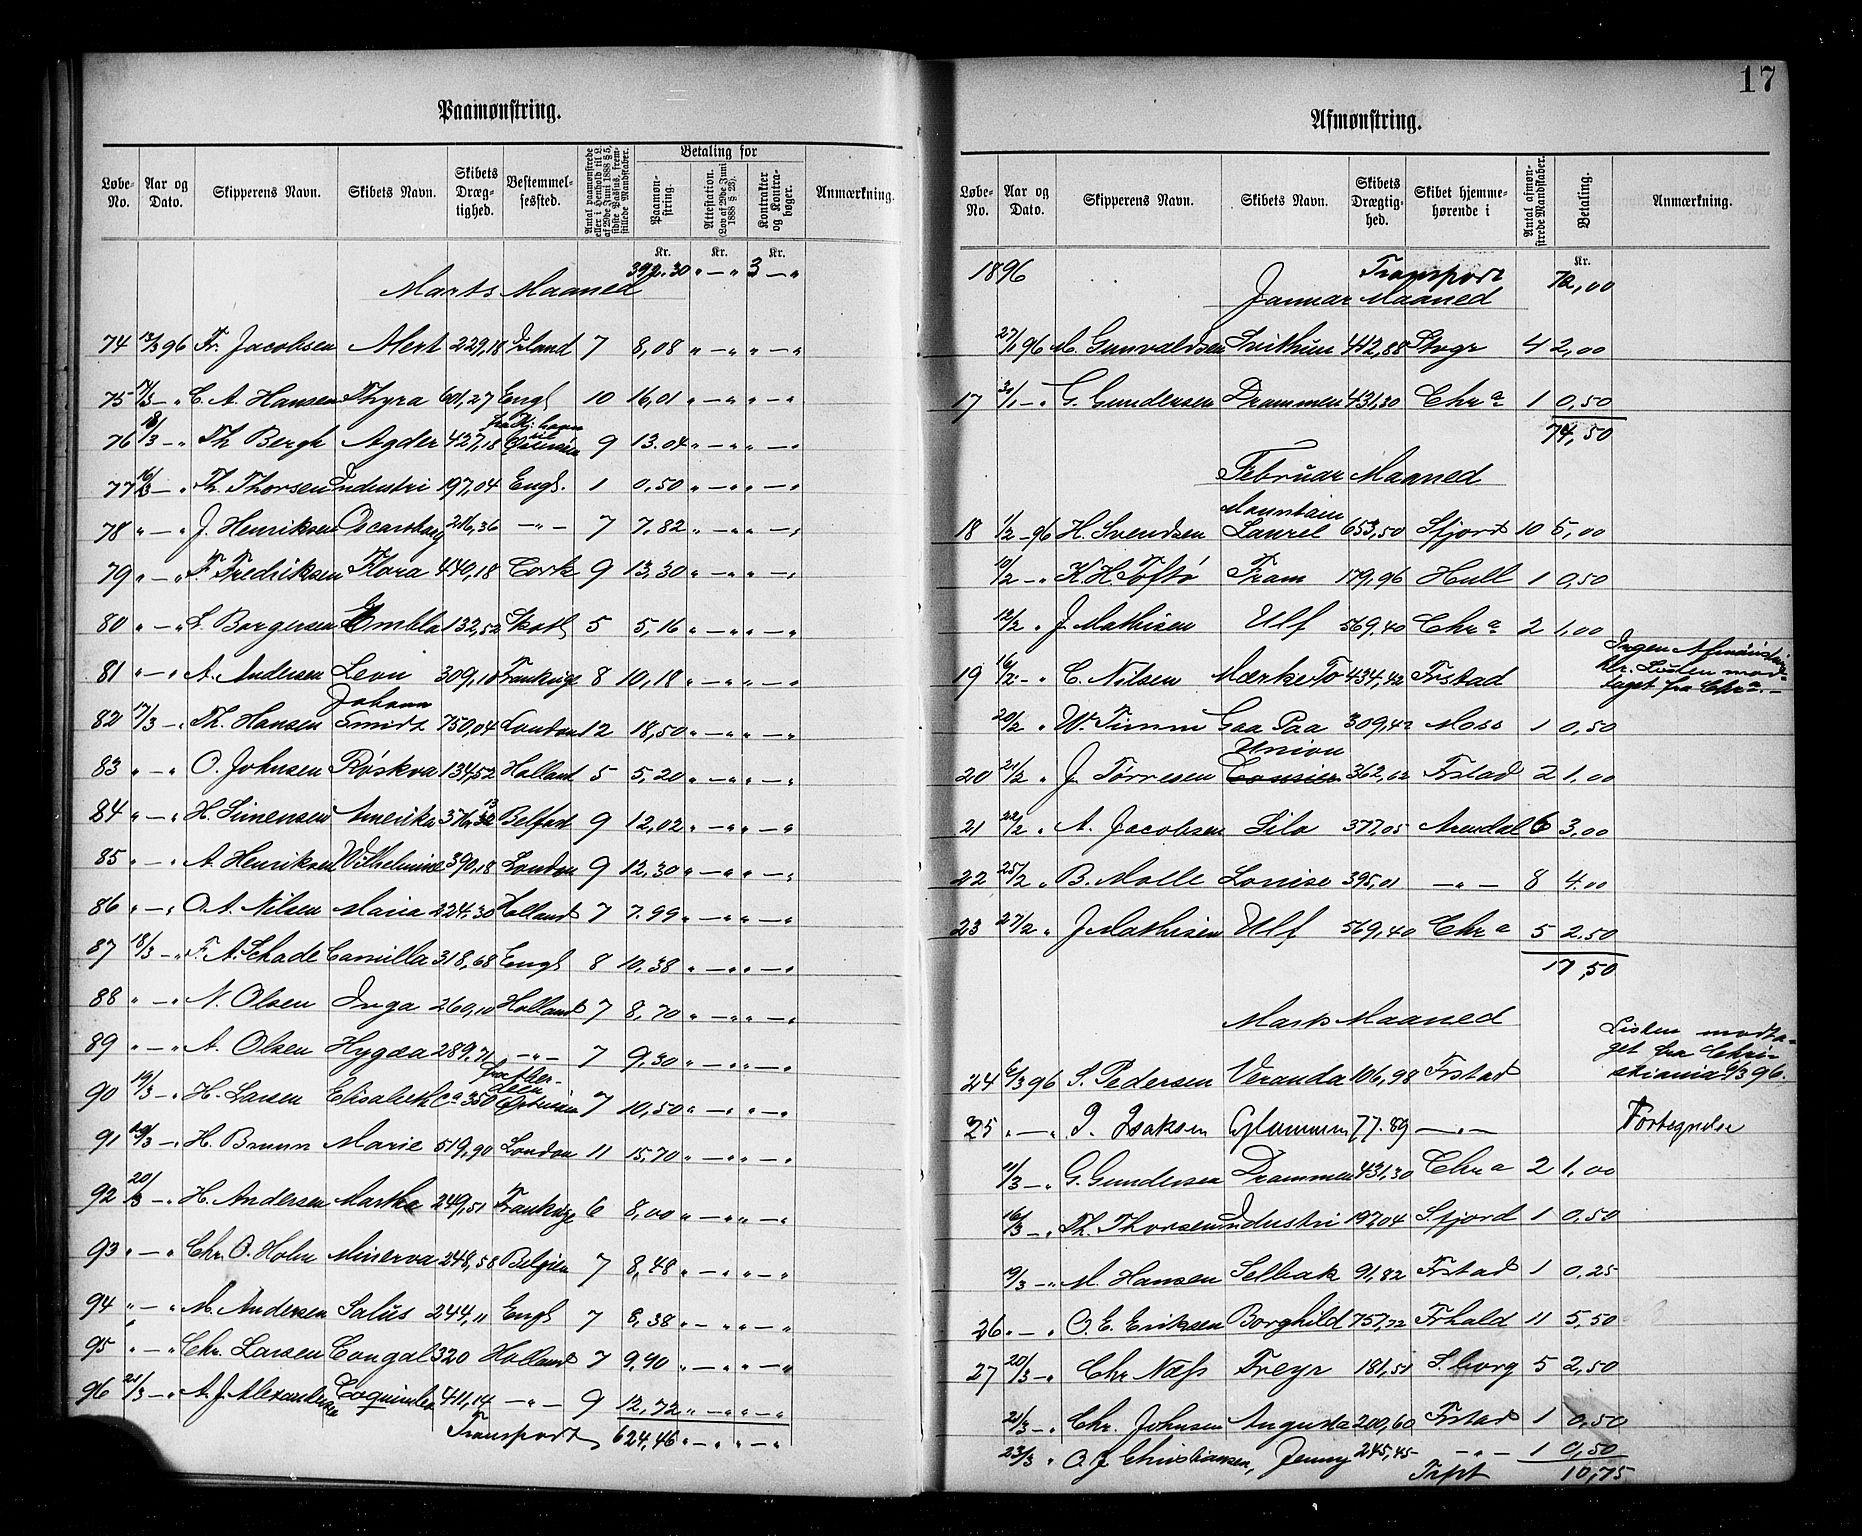 Paamønstring.
Løbe-No. Aar og Dato. Skipperens Navn. Skibets Navn. Skibets Dræg-tighed. Bestemmel-sessted. Antal paamønstrede eller i Henhold til L. af 29de Juni 1888 § 5, sidste Passus, frem-stillede Mandskaber. Betaling for Paamøn-string. Attestation. (Lov af 29de Juni 1888 § 23). Kontrakter og Kontra-bøger. Anmærkning.
Kr. Kr. Kr.
392.30 " — " 3 — "
Marts Maaned
74 12/3 96 Fr. Jacobsen Alert 229,18 Irland 7 8,08 " — " " — "
75 14/3 — " C. A. Hansen Thyra 601,27 Engl 10 16,01 " — " " — "
76 18/3 — " Th Bergh Agder 427,18 9 13.04 " — " " — "
77 16/3 — " Th. Thorsen Industri 197,04 Engl. 1 0,50 " — " " — "
78 " — " J. Henriksen Oscarsborg 216,36 — " — 7 7,82 " — " " — "
79 " — " F. Fredriksen Flora 440,18 Cork 9 13.30 " — " " — "
80 " — " L. Borgersen Embla 132,52 Skotl 5 5,16 " — " " — "
81 " — " A. Andersen Leon 309,18 Frankrige 8 10,18 " — " " — "
82 17/3 — " Th. Hansen Johann Smidt 750,04 London 12 18,50 " — " " — "
83 " — " O. Johnsen Røskva 134,52 Holland 5 5,20 " — " " — "
84 " — " H. Simensen Amerika 376,32 Belfast 9 12,02 " — " " — "
85 " — " A. Henriksen Wilhelmine 390,18 London 9 12,30 " — " " — "
86 " — " O. A. Nilsen Maria 224,30 Holland 7 7.99 " — " " — "
87 18/3 — " F. A. Schade Camilla 318,68 Engl 8 10,38 " — " " — "
88 " — " N. Olsen Inga 260,10 Holland 7 8,70 " — " " — "
89 " — " A. Olsen Hygæa 289,71 — " — 7 9,30 " — " " — "
90 19/3 — " H. Larsen Elisabeth Ca 350 7 10,50 " — " " — "
91 19/3 — " H. Bruun Marie 519,90 London 11 15,70 " — " " — "
92 20/3 — " H. Andersen Martha 249,51 Frankrige 6 8,00 " — " " — "
93 " — " Chr. O. Holm Minerva 248,58 Belgien 7 8,48 " — " " — "
94 " — " M. Andersen Salus 244,11 Engl 7 8,38 " — " " — "
95 " — " Chr. Larsen Congal 320 Holland 7 9,40 " — " " — "
96 21/3 — " A. J. Alexandersen 411,14 — " — 9 12,72 " — " " — "
Transport 624,46 " — " " — "
17
Afmønstring.
Løbe-No. Aar og Dato. Skipperens Navn. Skibets Navn. Skibets Drægtig-hed. Skibet hjemme-hørende i Antal afmøn-strede Mandskaber. Betaling. Anmærkning.
Kr.
1896 Transport 72,00
Januar Maaned
27/1 96 M. Gunvaldsen Svithun 412,88 Stvgr 4 2,00
17 31/1 — " G. Gundersen Drammen 431,30 Chr a 1 0,50
74,50
Februar Maaned
18 1/2 — 96 H. Svendsen Mountain Laurel 653,50 Sfjord 10 5,00
10/2 — " K. H. Toftø Fram 179,96 Hull 1 0,50
12/2 " J. Mathisen Ulf 569,40 Chr a 2 1,00
19 16/2 — " C. Nilsen Mærke To 434,42 Frstad Ingen Afmønstring Listen mod-taget fra Chr a. —
20/2 " W. Timm Gaa Paa 309,42 Moss 1 0,50
20 21/2 " J. Tørresen Union 362,62 Frstad 2 1,00
21 22/2 " A. Jacobsen Lilo 377,05 Arendal 6 3,00
22 25/2 " B. Molle Louise 395,01 — " — 8 4.00
23 27/2 " J. Mathisen Ulf 569,40 Chr a 5 2.50
17,50
Marts Maaned
24 6/3 96 S. Pedersen Veranda 106,98 Frstad Listen modta-get fra Chri-stiania 6/3 96.
25 " — " P. Isaksen Glommen 77.89 — " — Fortegnelse
11/3 — " G. Gundersen Drammen 431,30 Chr a 2 1,00
16/3 — " Th. Thorsen Industri 197,04 Sfjord 1 0,50
19/3 — " M. Hansen Selbak 91,82 Frstad 1 0.25
26 " — " O. E. Eriksen Borghild 757,72 Frhald 11 5,50
27 20/3 — " Chr Næss Freyr 181,51 S. borg 5 2,50
21/3 — " Chr. Johnsen Augusta 200,60 Frstad 1 0,50
23/3 " O. J. Christiansen, Jenny 245,45 — " — 1 0,50
Trpt 10,75